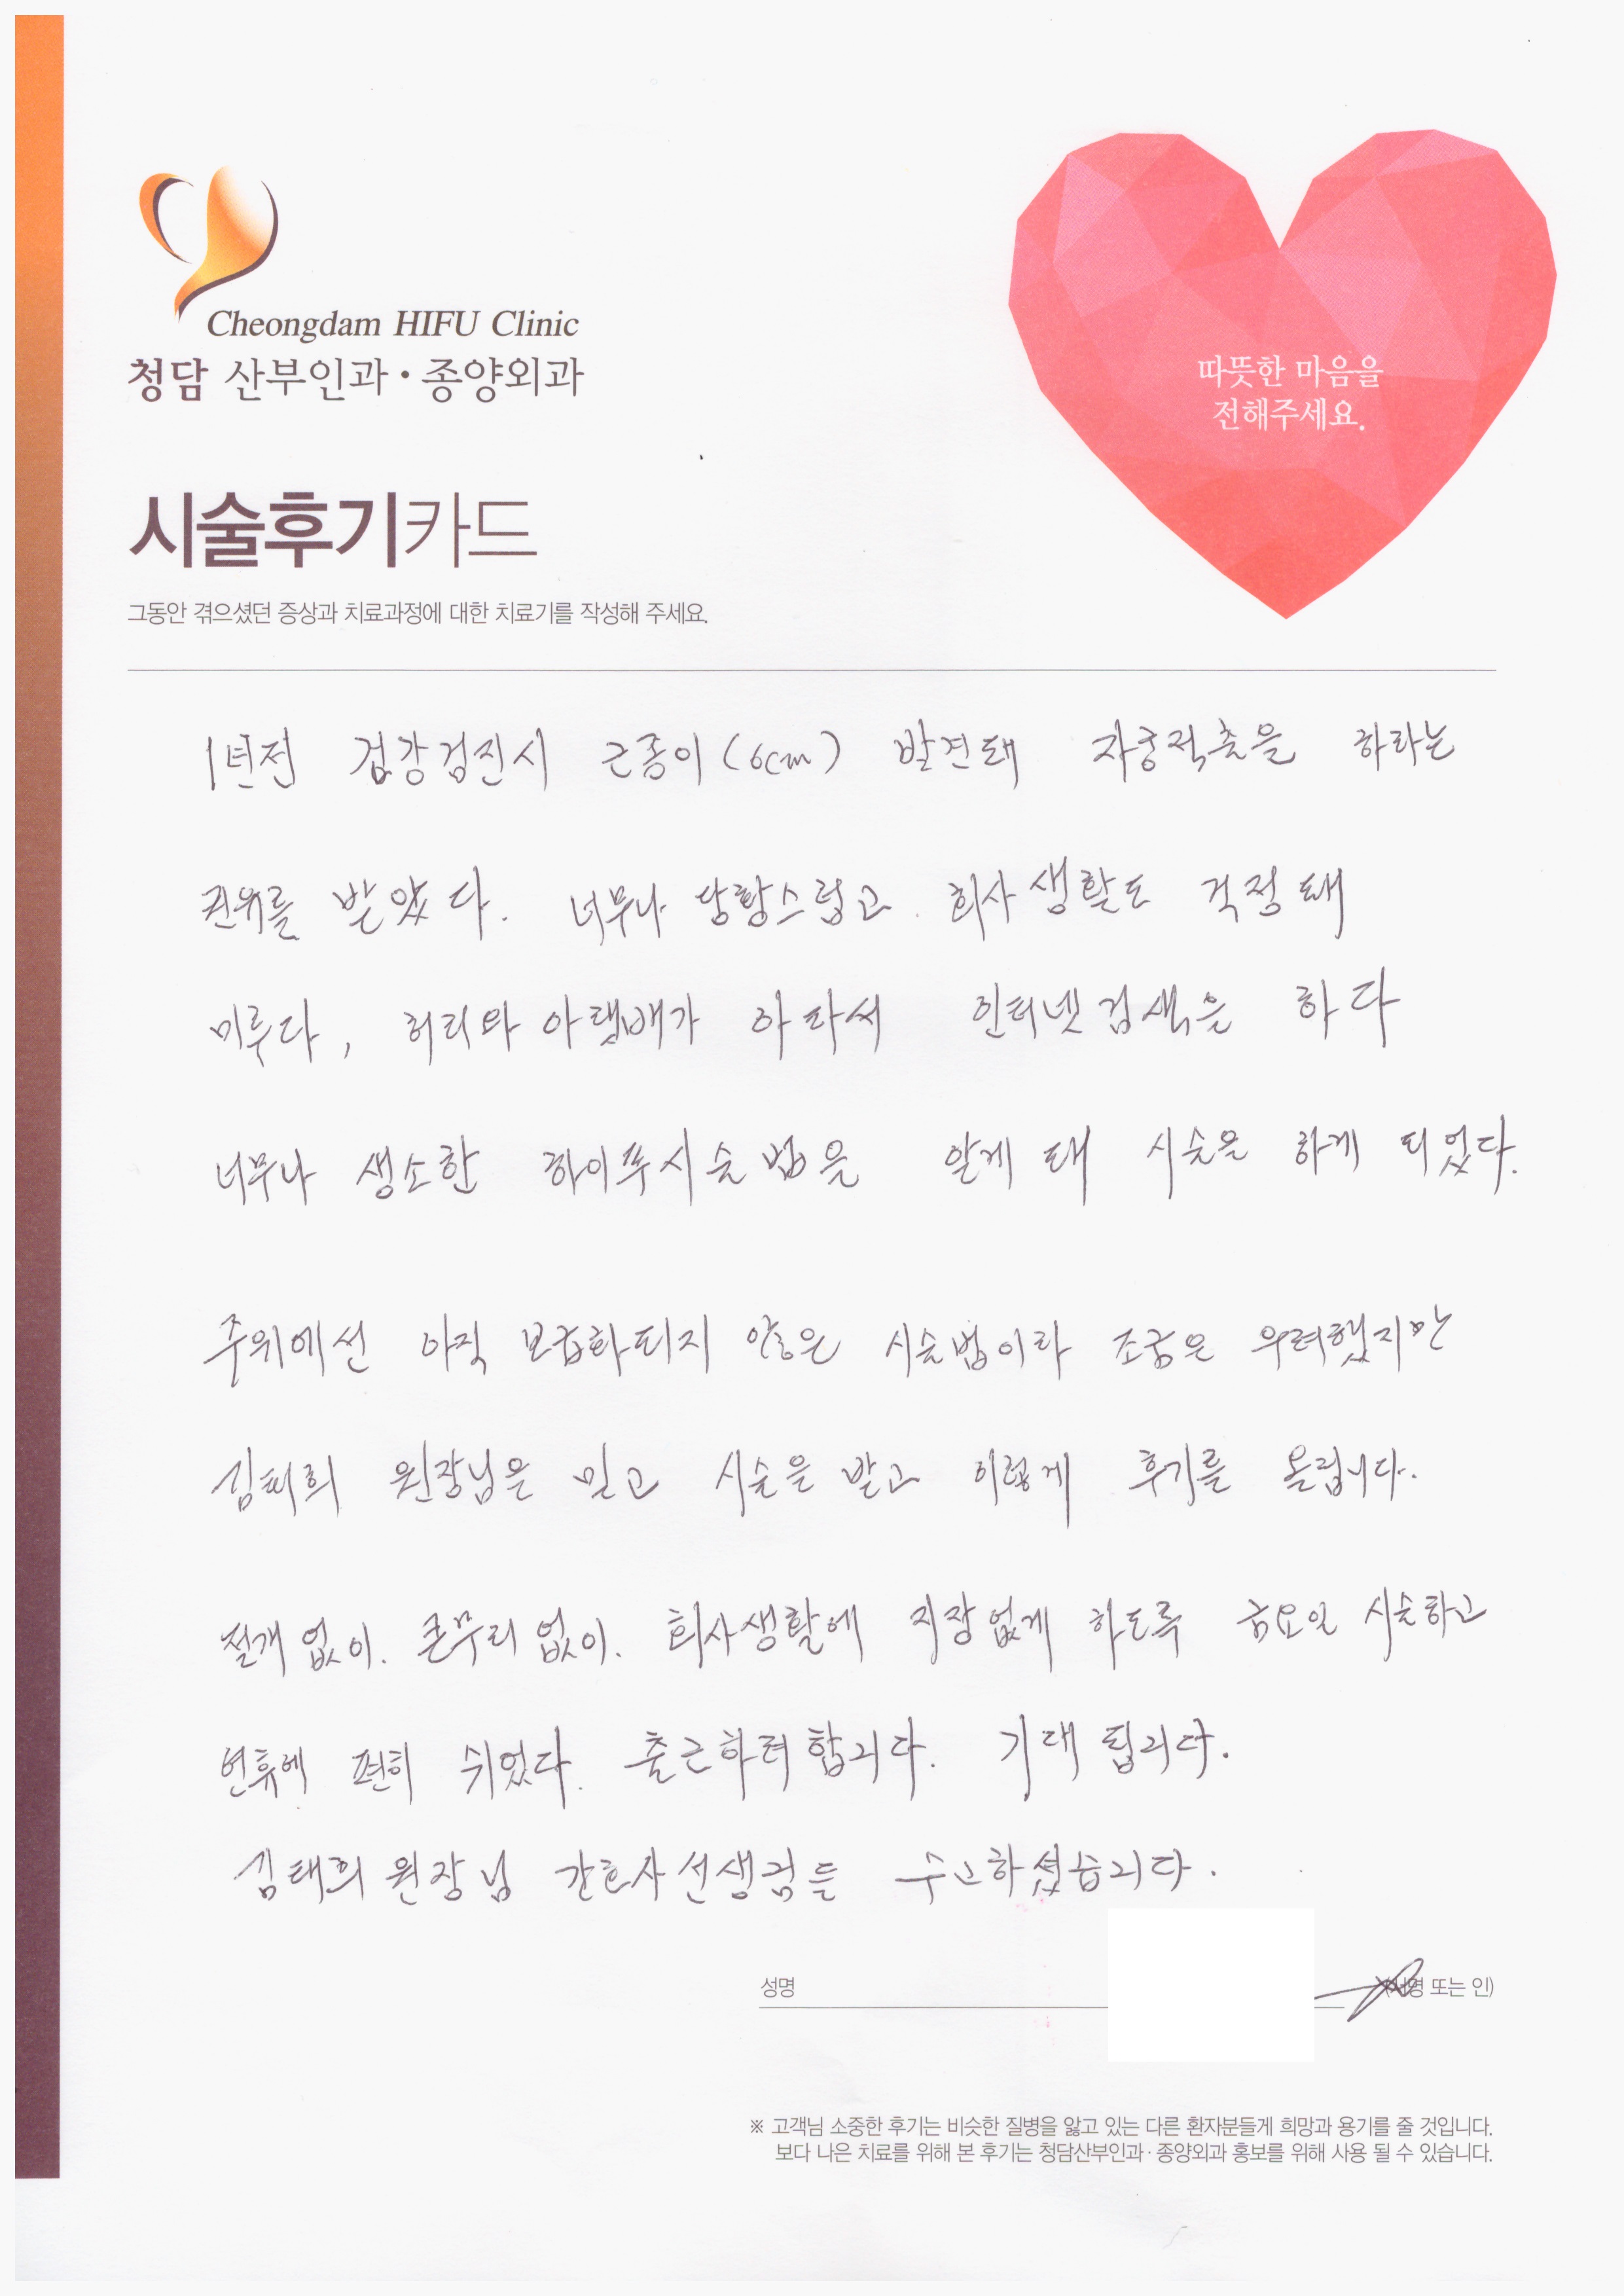 Cheongdam HIFU Clinic
청담 산부인과·종양외과
따뜻한 마음을
전해주세요.
시술후기카드
그동안 겪으셨던 증상과 치료과정에 대한 치료기를 작성해 주세요.
1년전 검강검진시 근종이(6cm) 발견돼 자궁적출을 하라는
권유를 받았다. 너무나 당황스럽고 회사생활도 걱정돼
미루다, 허리와 아랫배가 아파서 인터넷검색을 하다
너무나 생소한 하이푸시술법을 알게 돼 시술을 하게 되었다.
주위에선 아직 보급화되지 않은 시술법이라 조금은 우려했지만
김태희 원장님을 믿고 시술을 받고 이렇게 후기를 올립니다.
절개 없이. 큰무리 없이. 회사생활에 지장없게 하도록 금요일 시술하고
연휴에 편히 쉬었다. 출근하려 합니다. 기대 됩니다.
김태희 원장님 간호사선생님들 수고하셨습니다.
성명
(서명 또는 인)
※ 고객님 소중한 후기는 비슷한 질병을 앓고 있는 다른 환자분들게 희망과 용기를 줄 것입니다.
보다 나은 치료를 위해 본 후기는 청담산부인과·종양외과 홍보를 위해 사용 될 수 있습니다.